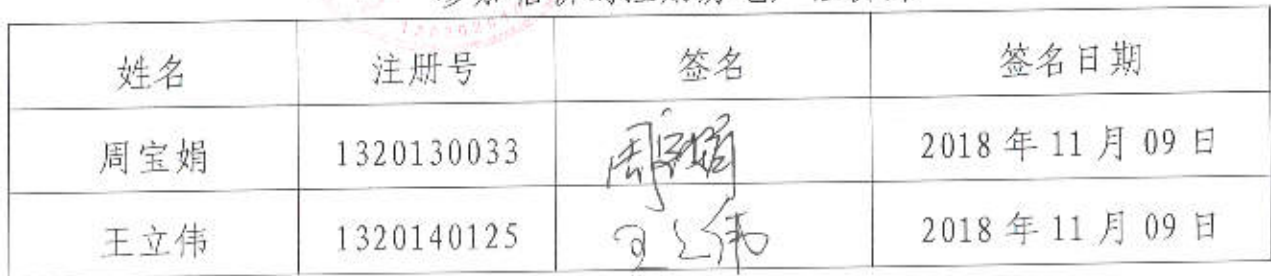 姓名 注册号 签名 签名日期
周宝娟 1320130033 周宝娟 2018年11月09日
王立伟 1320140125 王立伟 2018年11月09日